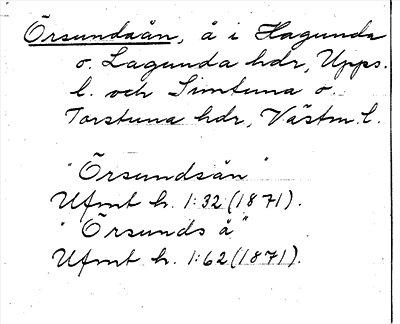 Örsundaån, å i Hagunda
o. Lagunda hdr, Upps.
l. och Simtuna o.
Torstuna hdr, Västm. l.
"Örsundsån"
Ufmt h. 1:32 (1871).
"Örsunds å"
Ufmt h. 1:62 (1871).